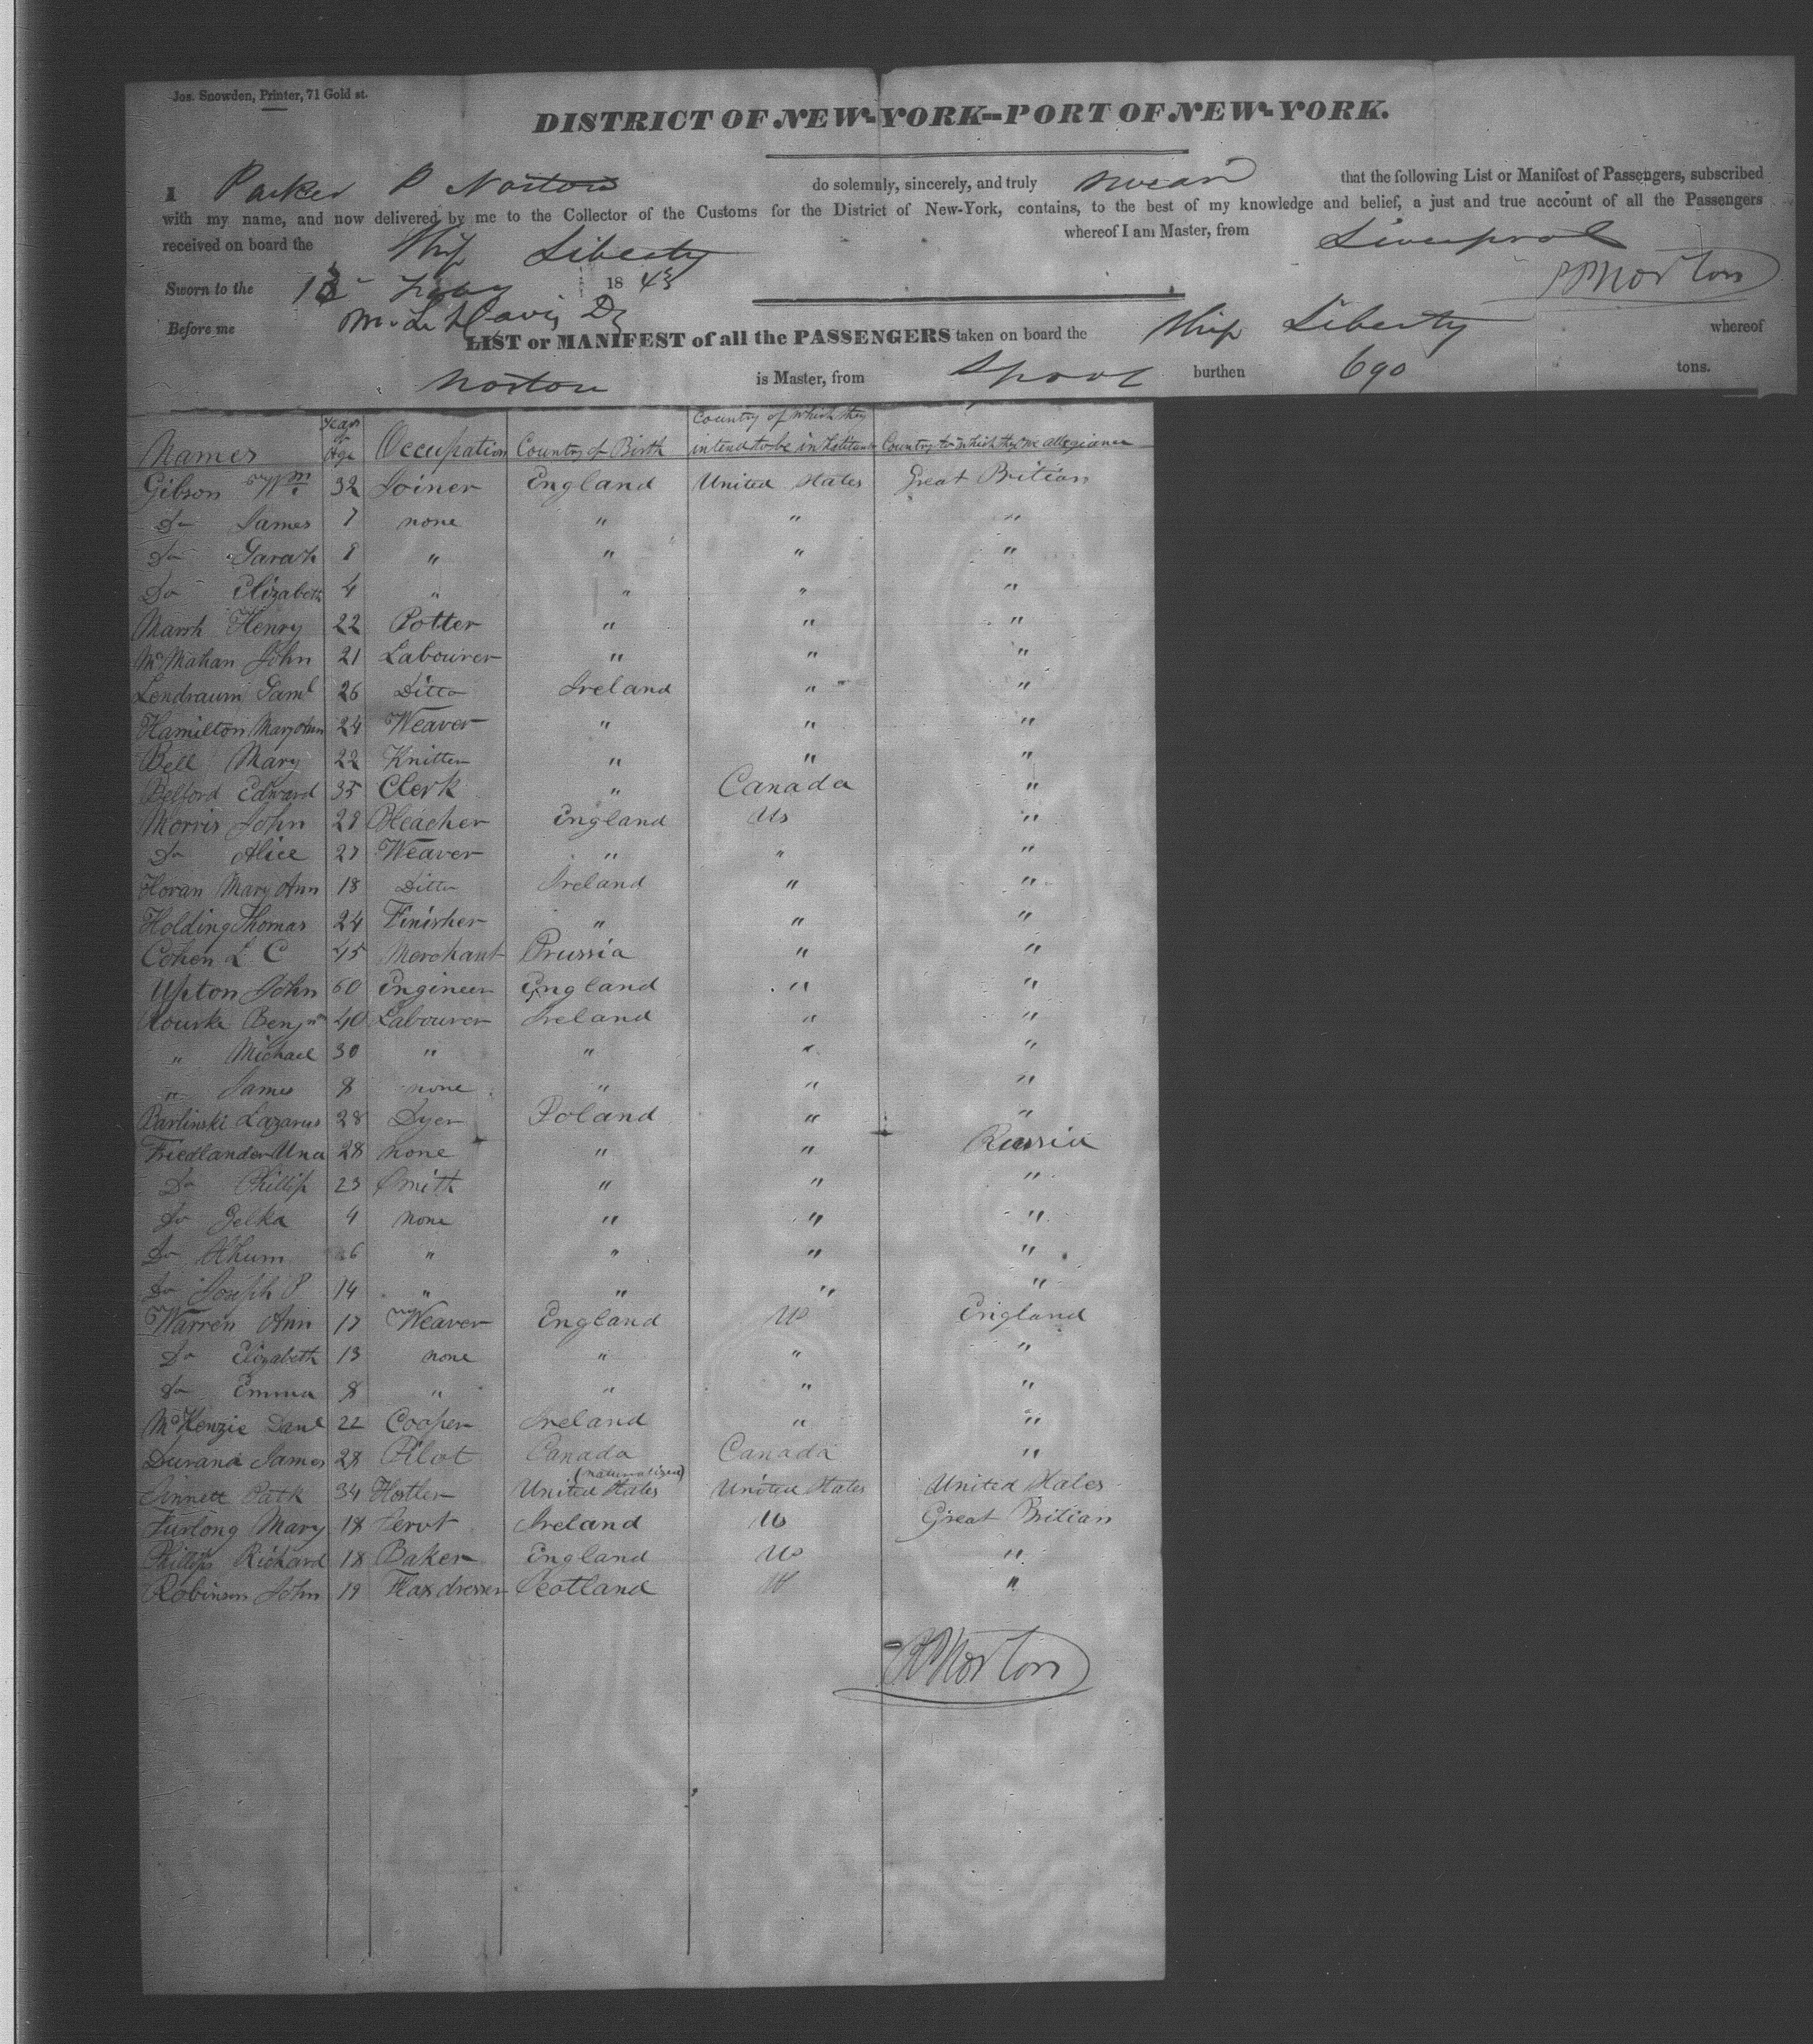 Jos. Snowden, Printer, 71 Gold st.
DISTRICT OF NEW-YORK--PORT OF NEW-YORK.
I Parker P Norton do solemnly, sincerely, and truly swear that the following List or Manifest of Passengers, subscribed
with my name, and now delivered by me to the Collector of the Customs for the District of New-York, contains, to the best of my knowledge and belief, a just and true account of all the Passengers
received on board the Ship Liberty whereof I am Master, from Liverpool
PPNorton
Sworn to the 18 43
Before me Davis
LIST or MANIFEST of all the PASSENGERS taken on board the Ship Liberty whereof
Norton is Master, from Lpool burthen 690 tons.
Names Years of Age Occupation Country of Birth Country of which they intend to be inhabitants Country to which they owe allegiance
Gibson Wm 32 Joiner England United States Great Britian
Do James 7 none " " "
Do Sarah 8 " " " "
Do Elizabeth 4 " " " "
Marsh Henry 22 Potter " " "
McMahan John 21 Labourer " " "
Lendraum Saml 26 Ditto Ireland " "
Hamilton Mary Ann 24 Weaver " " "
Bell Mary 22 Knitter " " "
Belford Edward 35 Clerk " Canada "
Morris John 28 Bleacher England Us "
Do Alice 27 Weaver " " "
Horan Mary Ann 18 Ditto Ireland " "
Holding Thomas 24 Finisher " " "
Cohen L C 45 Merchant Prussia " "
Upton John 60 Engineer England " "
Rourke Benjn 40 Labourer Ireland " "
" Michael 30 " " " "
" James 8 none " " "
Barlinski Lazarus 28 Dyer Poland " "
Friedlander Una 28 none " " Russia
Do Phillip 23 Smith " " "
Do Jelka 4 none " " "
Do 6 " " " "
Do Joseph P 14 " " " "
Warren Ann 17 Weaver England US England
Do Elizabeth 13 none " " "
Do Emma 8 " " " "
McKenzie Danl 22 Cooper Ireland " "
Durand James 28 Pilot Canada Canada "
Sinnett Patk 34 Hostler United States (naturalized) United States United States
Furlong Mary 18 Servt Ireland Us Great Britian
Phillips Richard 18 Baker England US "
Robinson John 19 Flax dresser Scotland US "
PPNorton